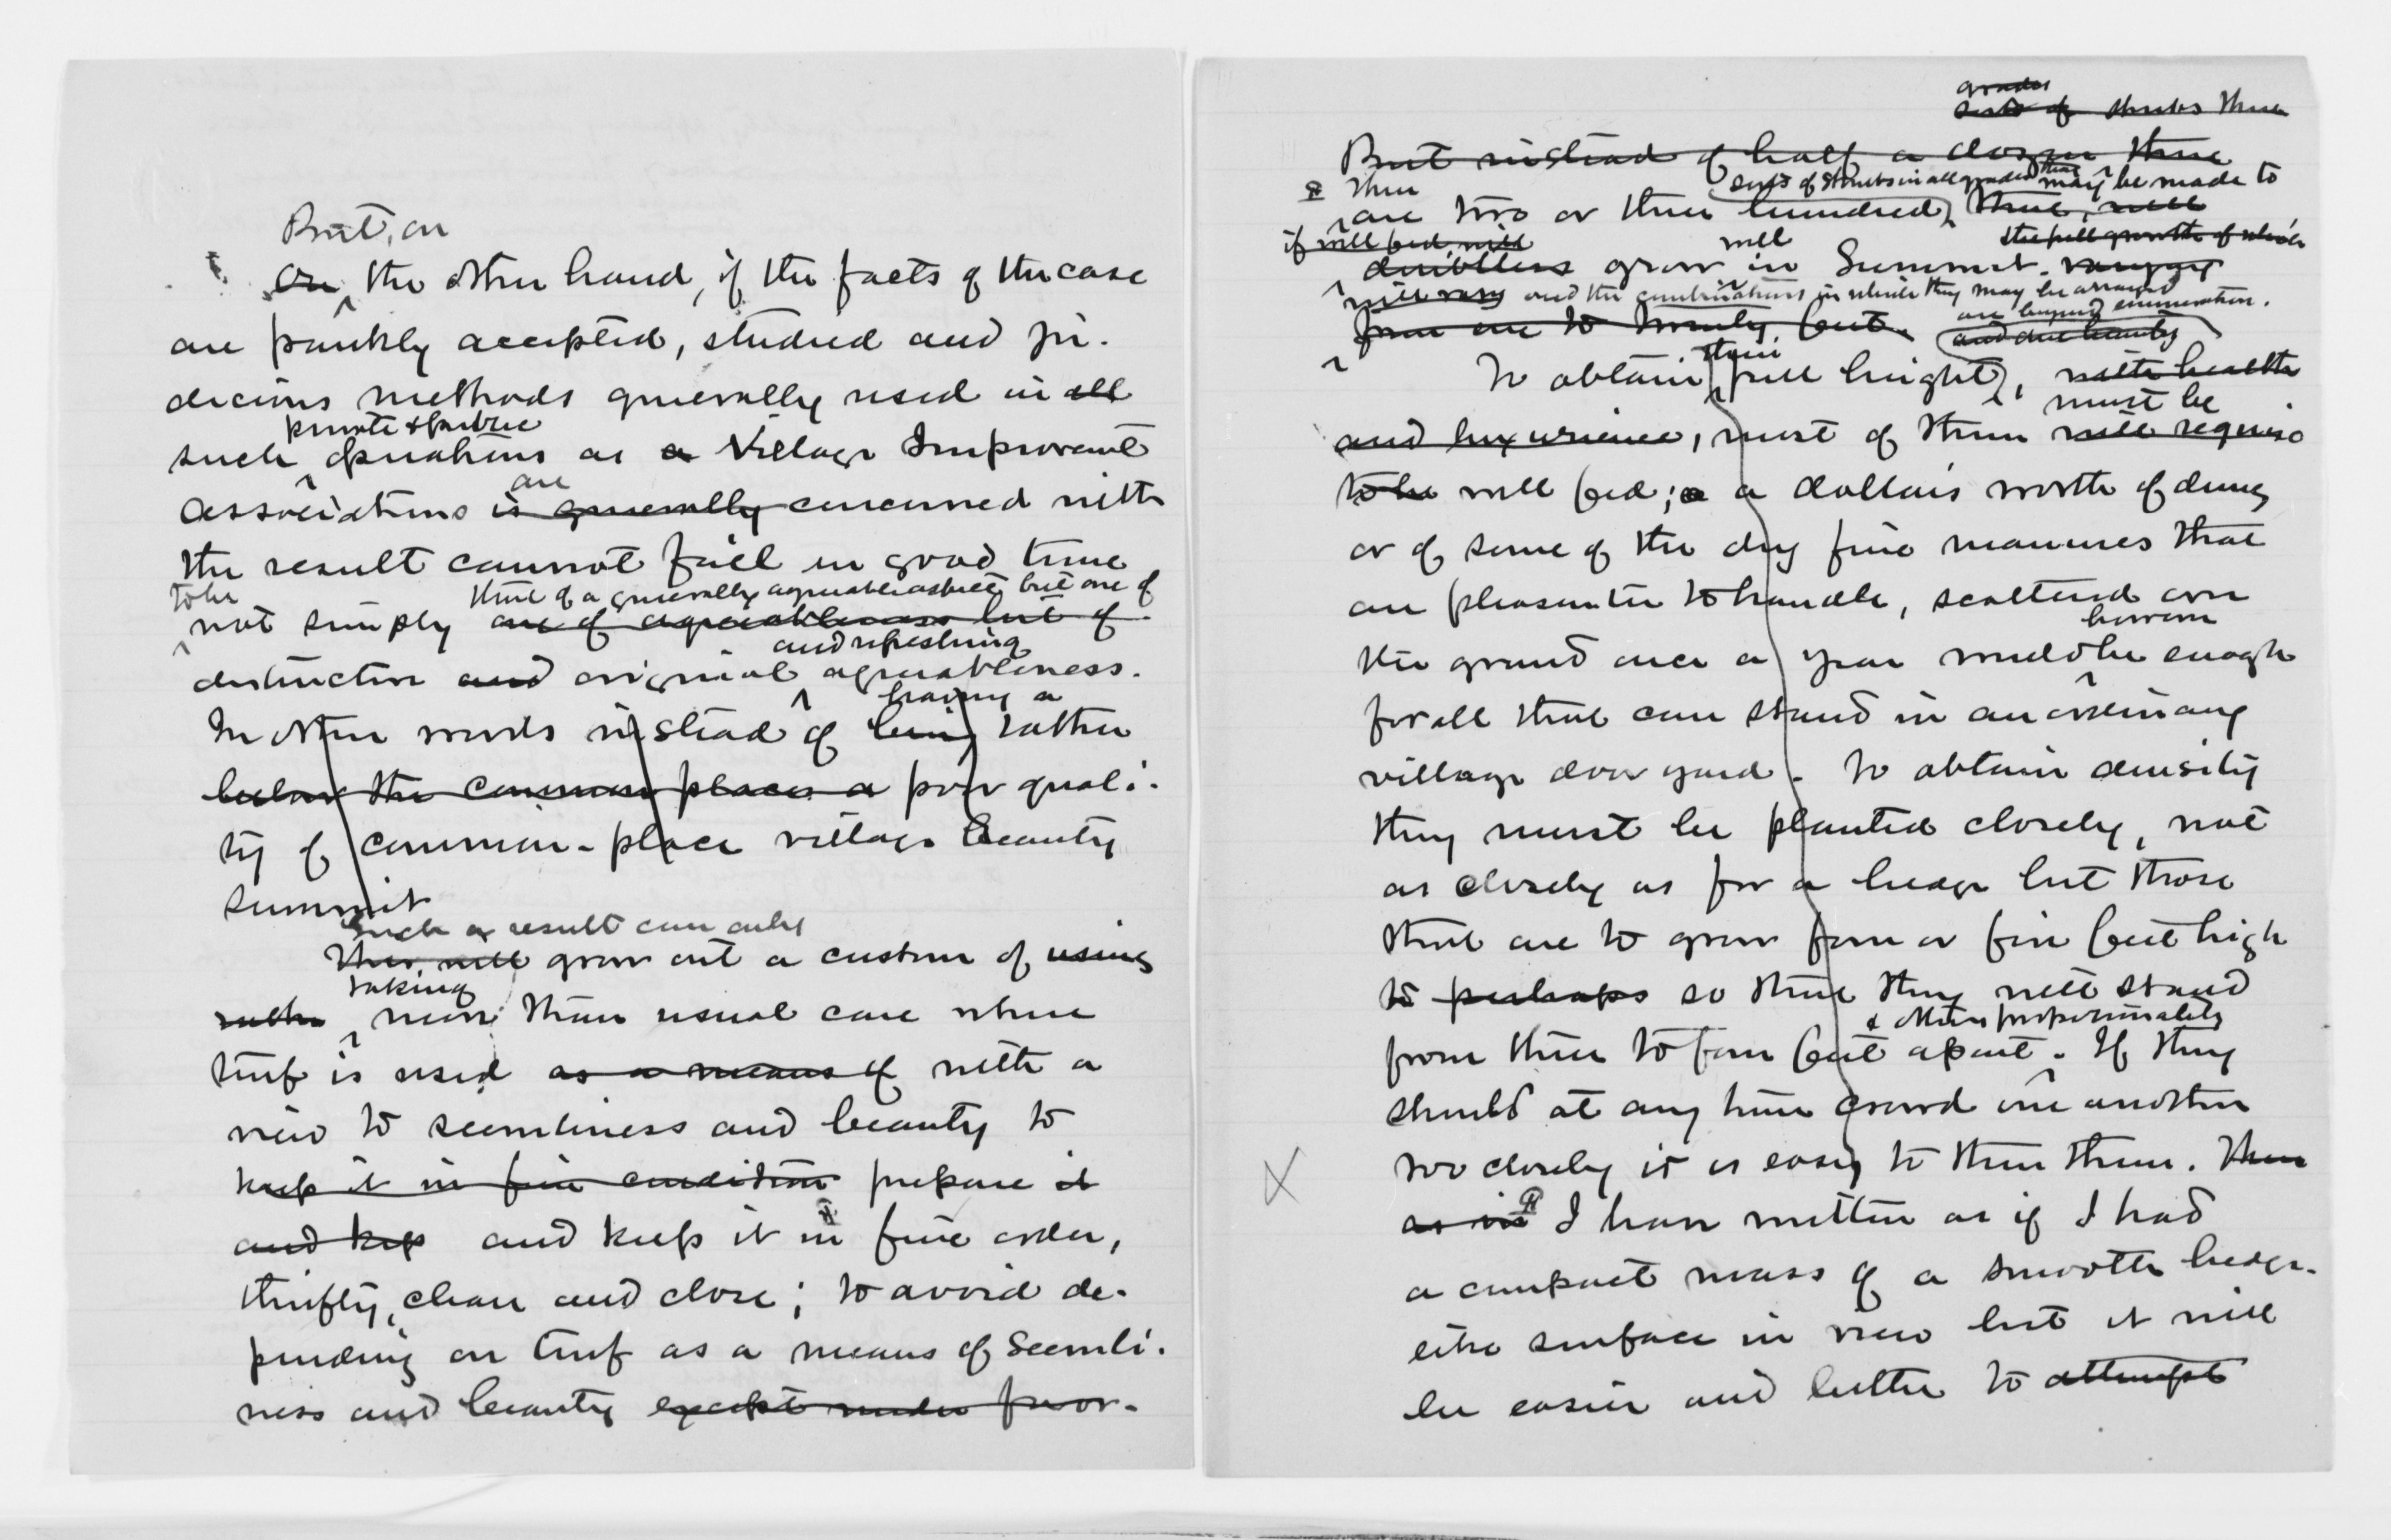 But, on
On the other hand, if the facts of the case
are frankly accepted, studied and ju-
dicious methods generally used in all
private & public
such operations as a Village Improvement
are
Associations is generally concerned with
the result cannot fail in good time
to be that of a generally agreeable aspect but one of
not simply one of agreeableness but of
and refreshing
distinctive and original agreeableness.
having a
In other words instead of being rather
below the common place a poor quali-
ty of common-place village beauty
Summit
Such a result can only
This will grow out a custom of using
taking
rather more than usual care where
turf is used as a means of with a
view to seemliness and beauty to
keep it in fine condition prepare it
and kep and keep it in fine order,
thrifty, clean and close; to avoid de-
pending on turf as a means of seemli-
ness and beauty except under favor-
grades
sorts of shrubs there
But instead of half a dozen there
There sorts of shrubs in all grades that may be made to
are two or three hundred, that, will
if well fed, will well the full growth of which
doubtless grow in Summit. ranging
will vary and the combinations in which they may be arranged
are beyond enumeration.
from one to twenty feet. and due beauty
their
To obtain full height, with health
must be
and luxurience, most of them will require
to be well fed; a a dollar's worth of dung
or of some of the dry fine manures that
are pleasanter to handle, scattered over
however
the ground once a year would be enough
for all that can stand in an ordinary
village door yard. To obtain density
they must be planted closely, not
as closely as for a hedge but those
that are to grow four or five feet high
to perhaps so that they will stand
& others proportionately
from three to four feet apart. If they
should at any time crowd one another
too closely it is easy to thin them. Then
as in I have written as if I had
a compact mass of a smooth hedge-
like surface in view but it will
be easier and better to attempt